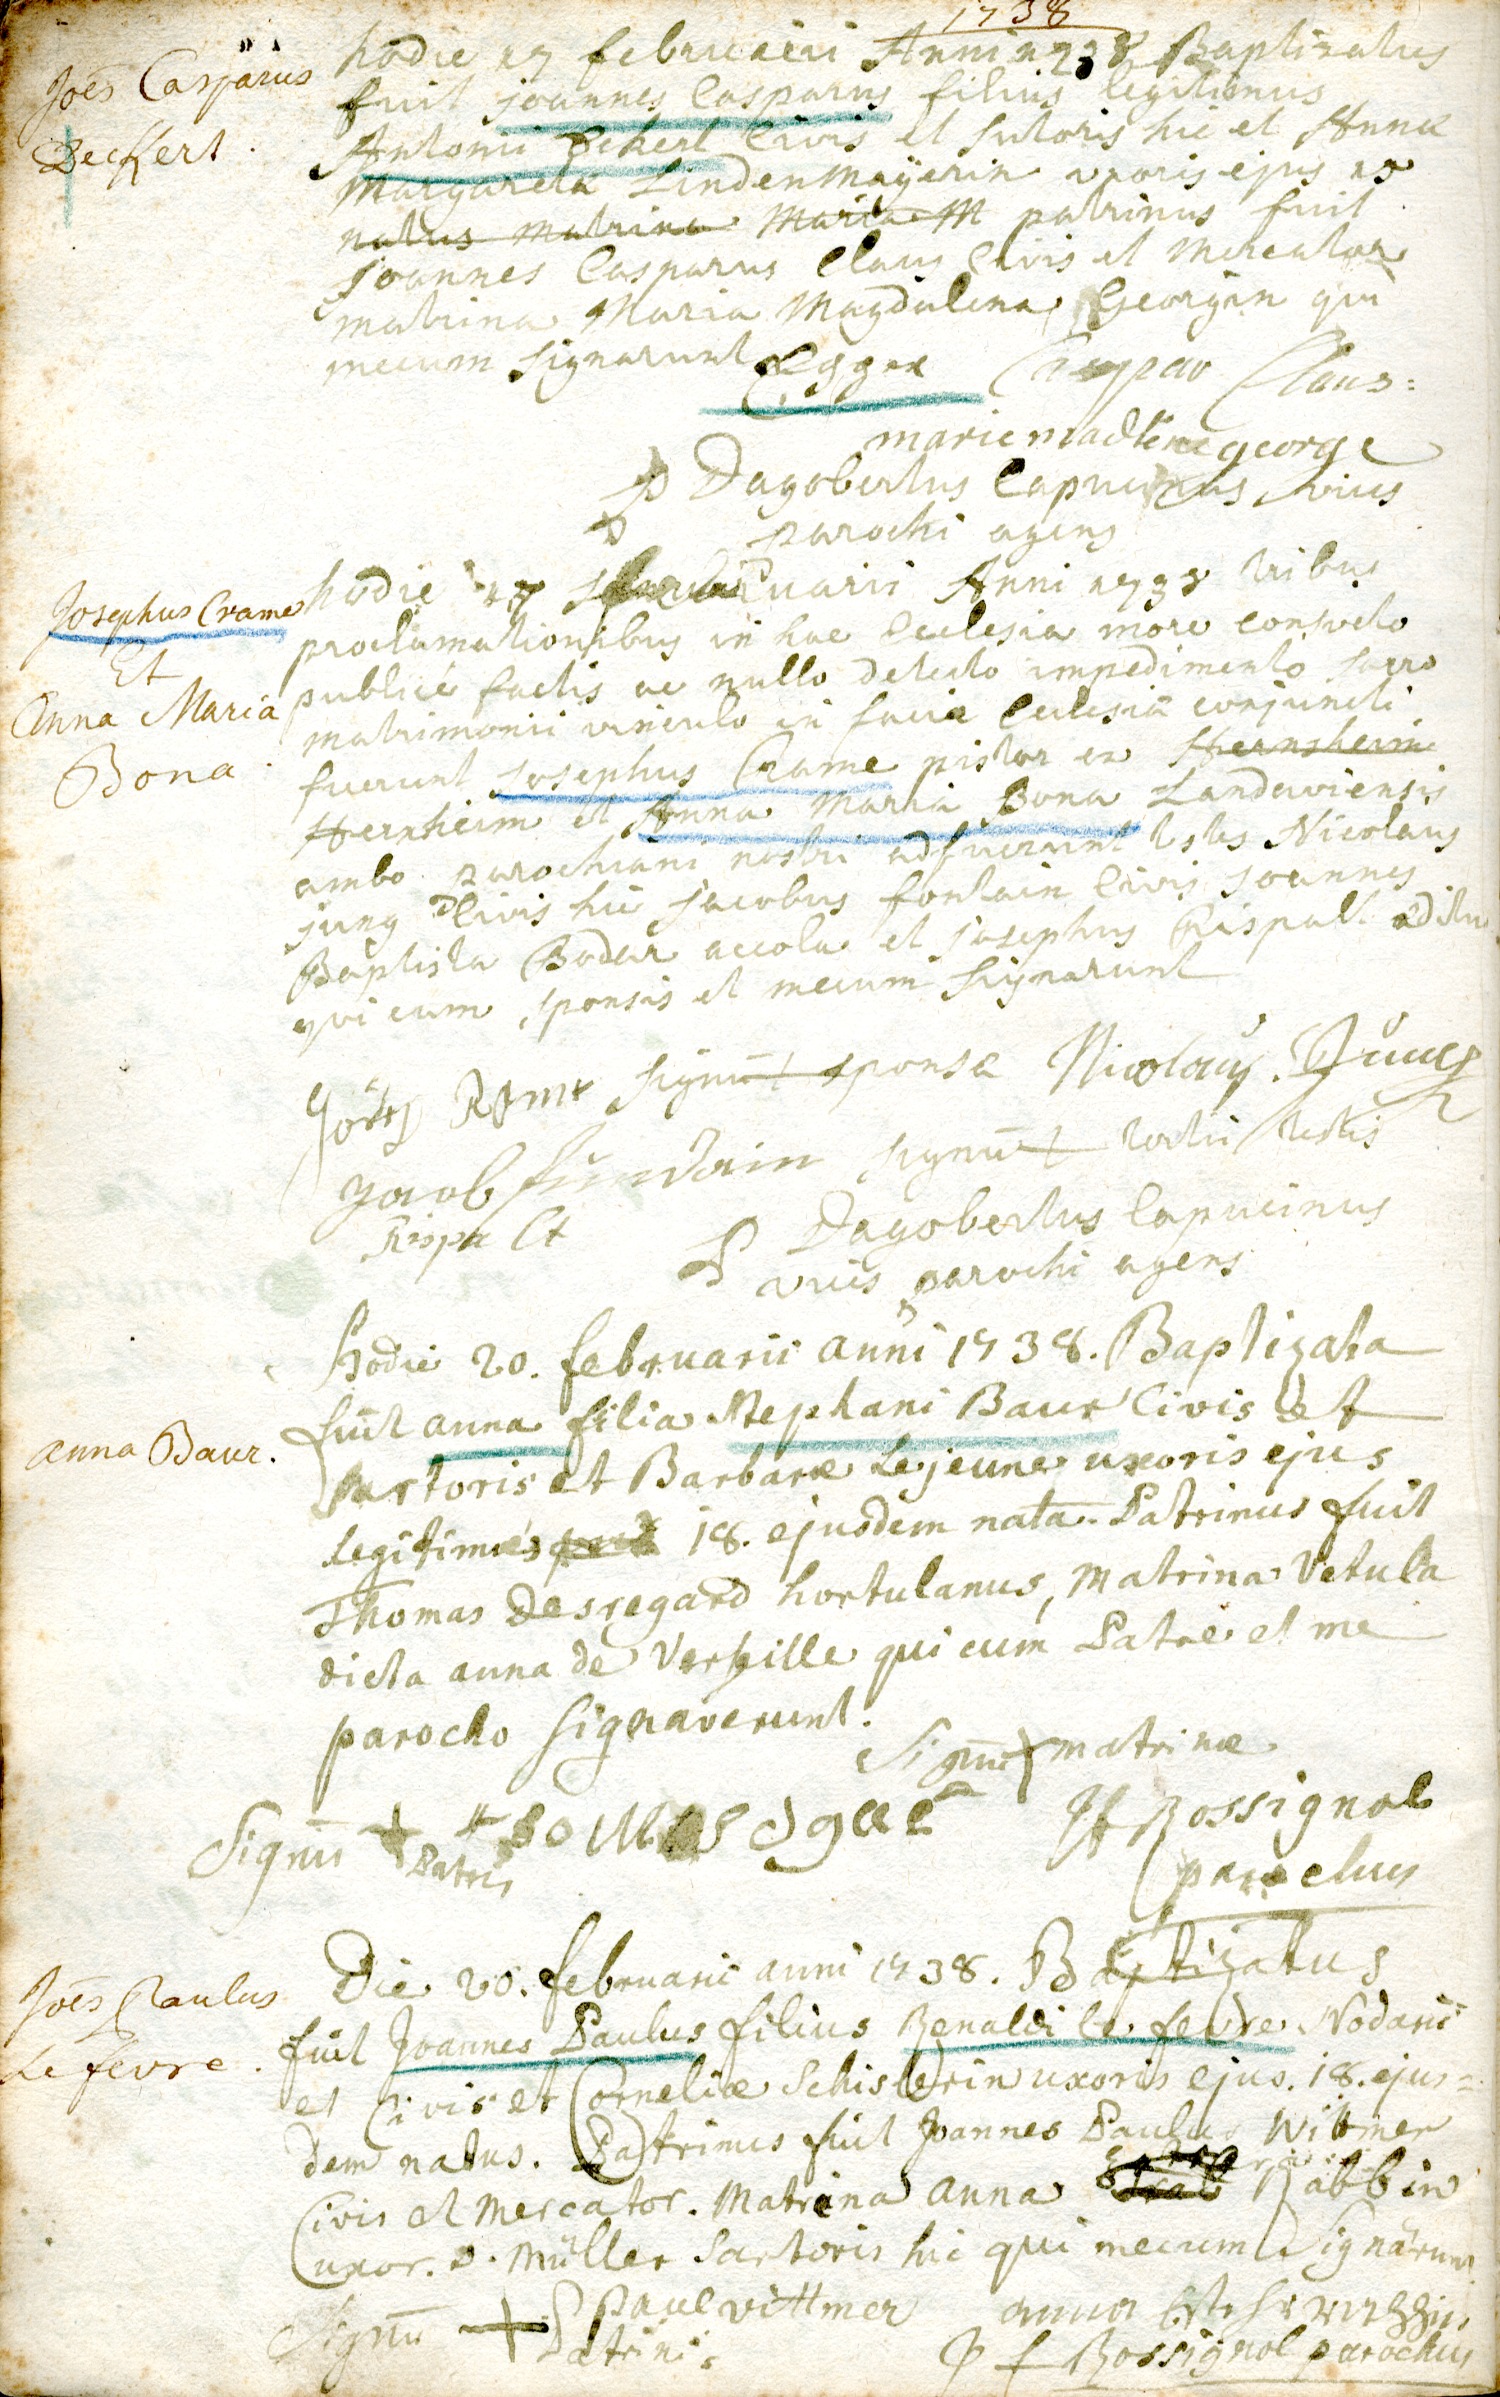 1738
Joes Casparus
Deckert.
hodie 17 februarii Anni 1738 Baptizatus
fuit joannes Casparus filius legitimus
Antonii Dekert Civis et sutoris hic et Annæ
Margaretæ Lindenmaÿerin uxoris ejus
natus matrina Maria M patrinus fuit
joannes Casparus Claus Civis et Mercator
matrina Maria Magdalena Georgin qui
mecum signarunt Casspar Claus
marie madlene george
P Dagobertus Capucinus vices
parochi agens
Josephus Crame
Et
Anna Maria
Bona
hodie 17 februarii Anni 1738 tribus
proclamationibus in hac Ecclesia more consueto
publicé factis ac nullo detecto impedimento sacro
matrimonii vinculo in facie Ecclesiæ conjuncti
fuerunt josephus Crame pistor ex Hernsheim
Hernheim et Anna Maria Bona Landaviensis
ambo parochiani nostri adfuerunt testes Nicolaus
jung Civis hic jacobus fontain Civis joannes
Baptista Boder accola et josephus Rispalt
qui cum sponsis et mecum signarunt
signū + sponsæ Nicolaus Jung
Jacob signū + testis
Rispalt
P Dagobertus Capucinus
vices parochi agens
anna Baur.
Hodie 20. februarii anni 1738. Baptizata
fuit anna filia Stephani Baur Civis et
sartoris et Barbaræ Lejeune uxoris ejus
legitimæ 18. ejusdem nata. Patrinus fuit
Thomas Desregard hortulanus, Matrina Vetula
dicta anna de Verseille qui cum Patre et me
parocho signaverunt.
Signū + matrinæ
Signū + Patris
JF Rossignol
parochus
Joes Paulus
Lefevre.
Die 20. februarii anni 1738. Baptizatus
fuit Joannes Paulus filius Renaldi le fevre
et Civis et Corneliæ Schislerin uxoris ejus. 18. ejus=
dem natus. Patrinus fuit Joannes Paulus Witmer
Civis et Mercator. Matrina anna Rabbin
uxor D. Müller sartoris hic qui mecum signarunt
Signū + Patrini Paul vittmer anna
P f Rossignol parochus